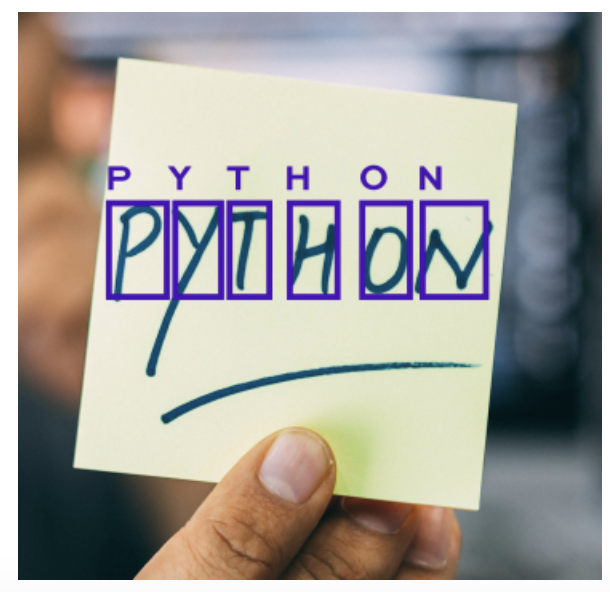 P Y T H O N
PYTHON